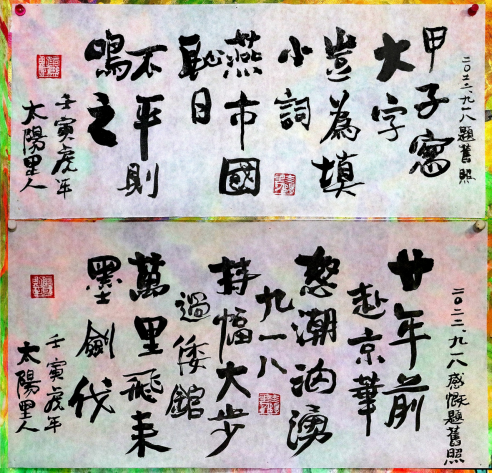 二〇二二、九一八題舊照
甲子寫
大字
豈為填
小詞
燕市國
恥日
不平則
鳴之
壬寅虎年
太陽里人
二〇二二、九一八感慨題舊照
廿年前
赴京華
怒潮洶湧
九一八
持幅大步
過倭館
萬里飛來
墨劍伐
壬寅虎年
太陽里人